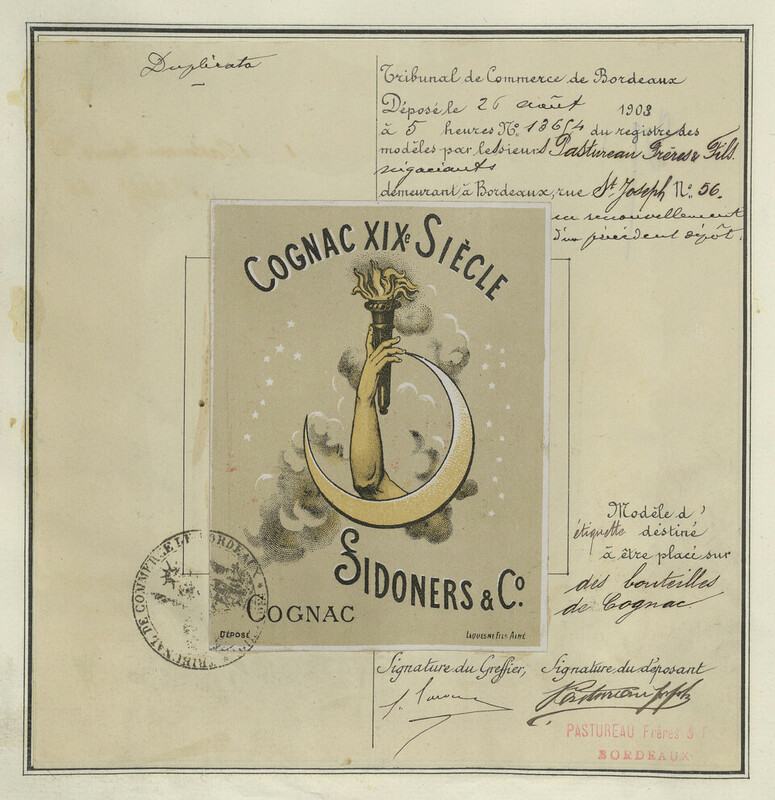 Duplicata
Tribunal de Commerce de Bordeaux
Déposé le 26 août 1903
à 5 heures No. 13654 du registre des
modèles par les sieurs Pastureau Frères & Fils.
négociants
demeurant à Bordeaux, rue St. Joseph No. 56.
en renouvellement
d'un précédent dépôt.
COGNAC XIXe SIÈCLE
SIDONERS & Co.
COGNAC
DÉPOSÉ
LAQUESNE FILS AINÉ
Modèle d'
étiquette destiné
à être placé sur
des bouteilles
de Cognac
TRIBUNAL DE COMMERCE DE BORDEAUX
Signature du Greffier, Signature du déposant
PASTUREAU Frères & F
BORDEAUX